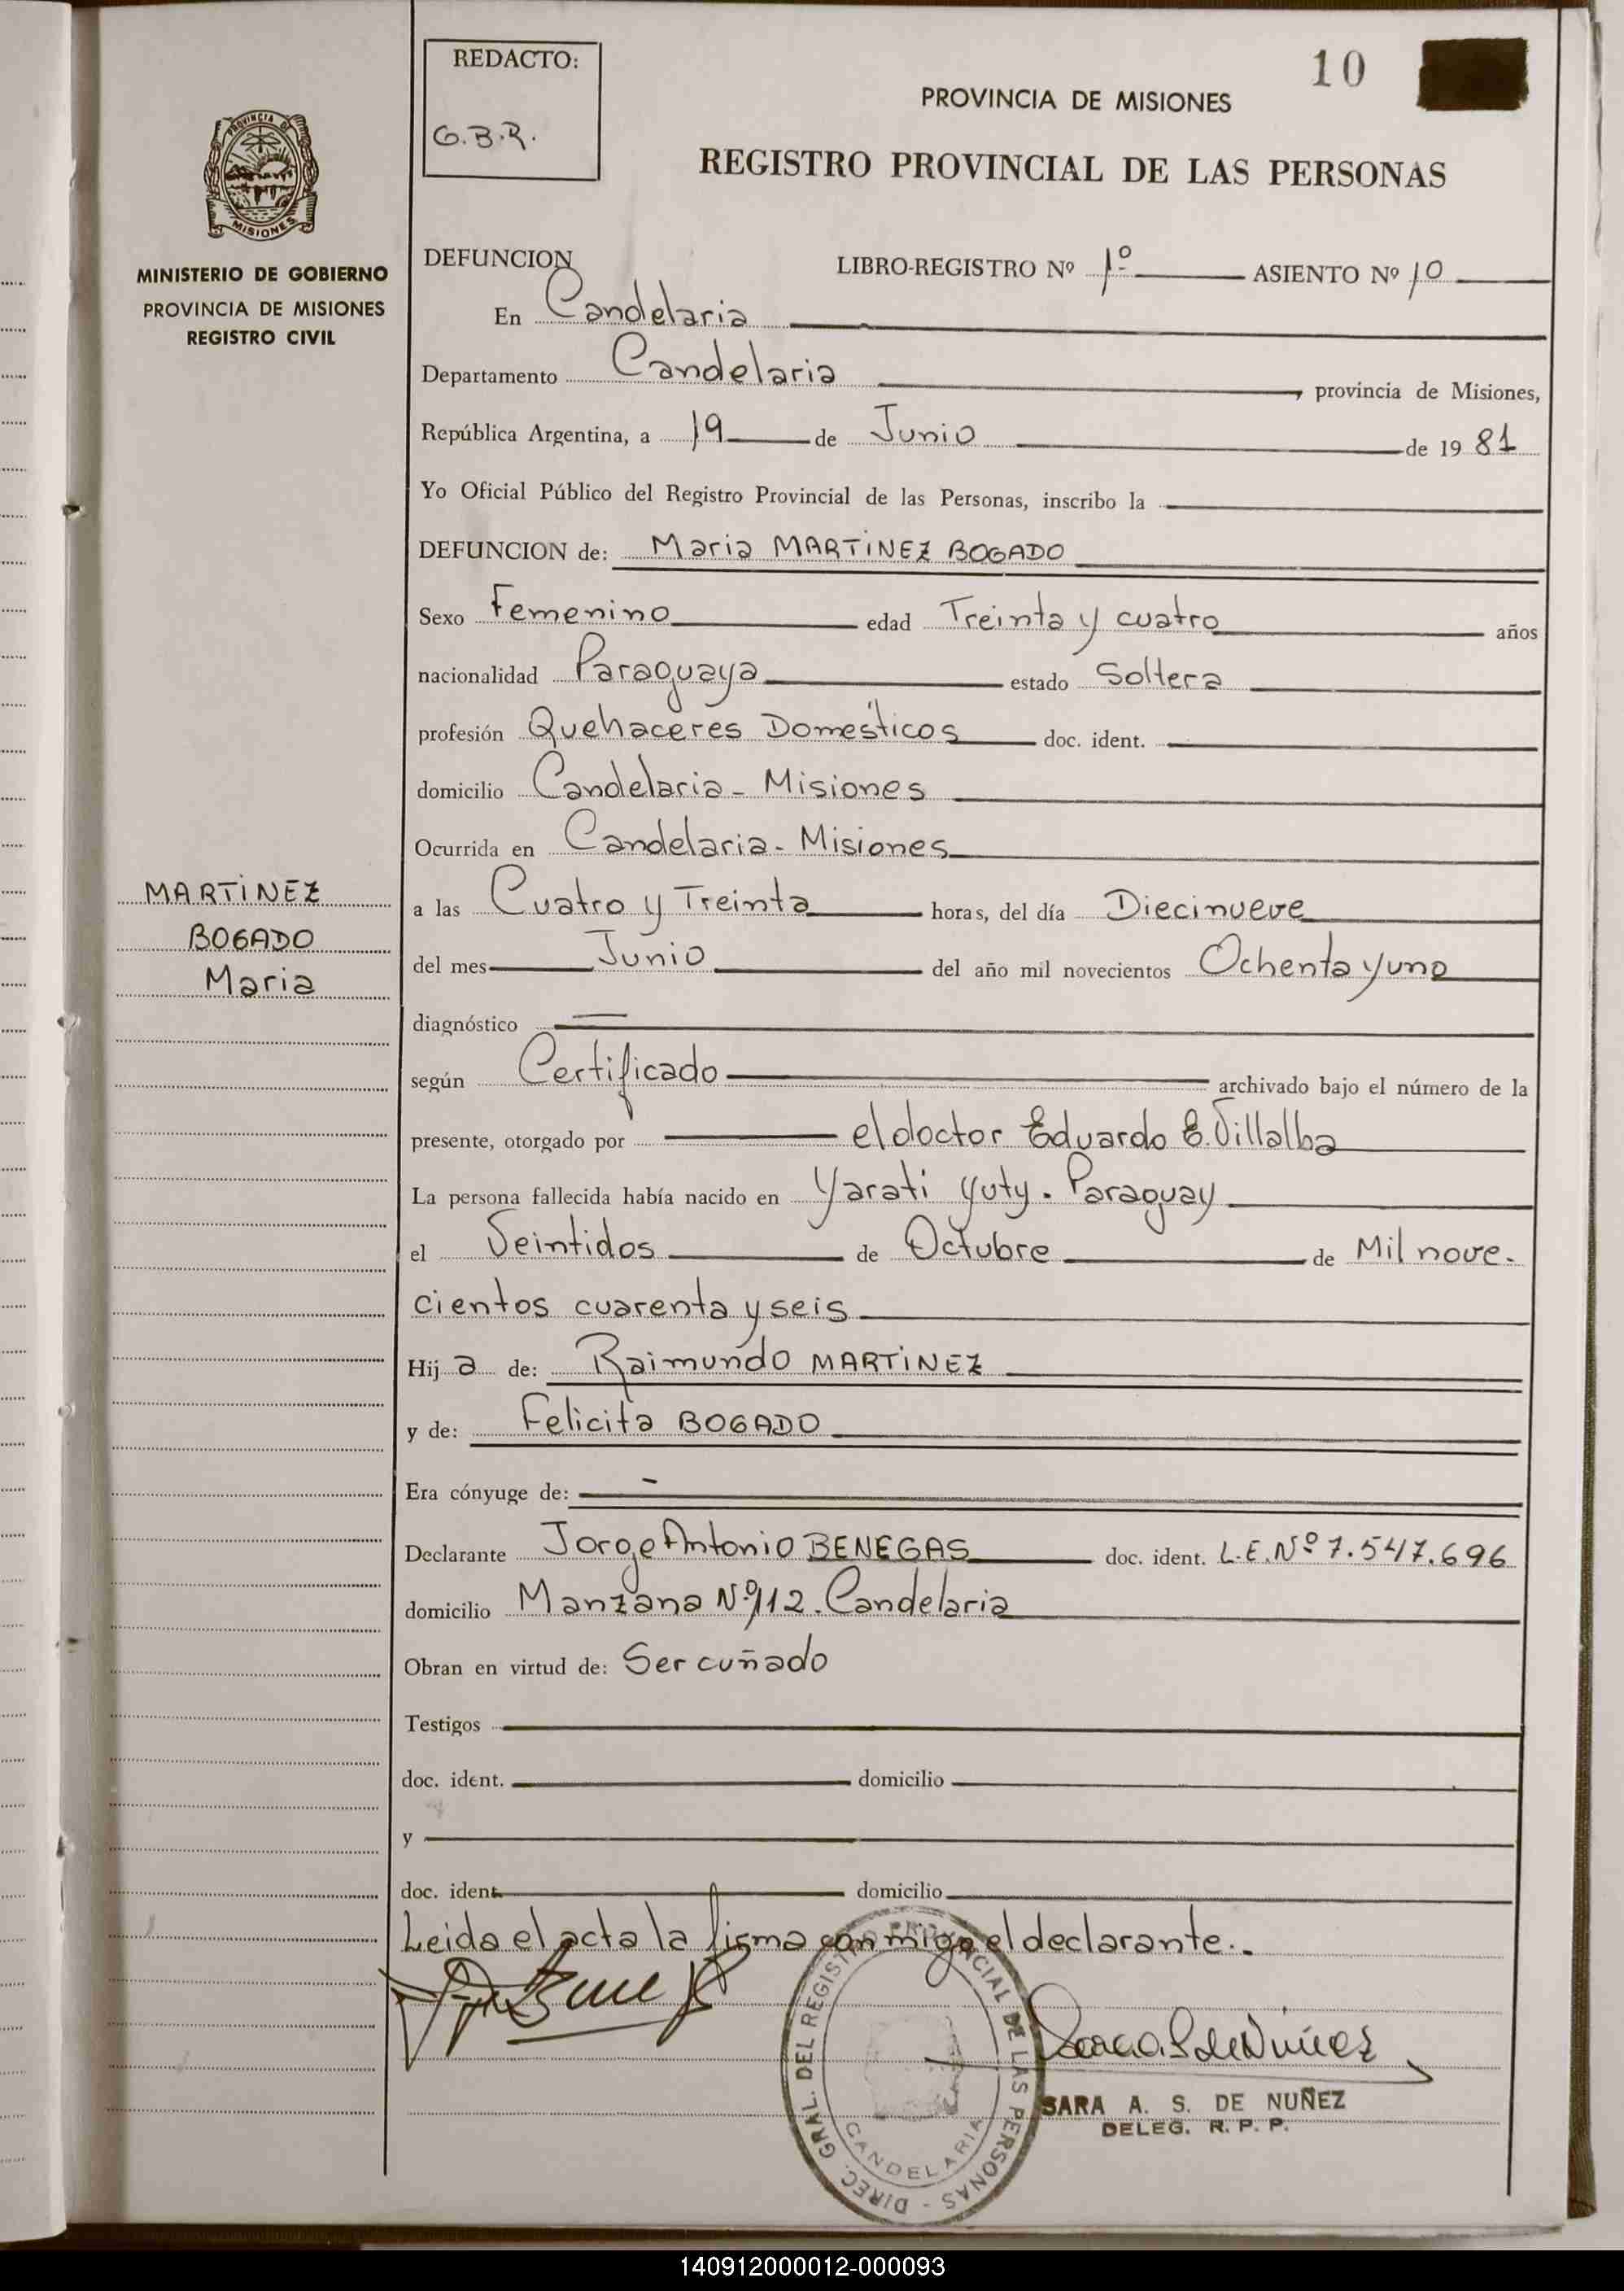 REDACTO:
G.B.R.
10
PROVINCIA DE MISIONES
REGISTRO PROVINCIAL DE LAS PERSONAS
PROVINCIA DE
MISIONES
MINISTERIO DE GOBIERNO
PROVINCIA DE MISIONES
REGISTRO CIVIL
DEFUNCION LIBRO-REGISTRO Nº 1º ASIENTO Nº 10
En Candelaria
Departamento Candelaria, provincia de Misiones,
República Argentina, a 19 de Junio de 1981
Yo Oficial Público del Registro Provincial de las Personas, inscribo la
DEFUNCION de: Maria MARTINEZ BOGADO
Sexo Femenino edad Treinta y cuatro años
nacionalidad Paraguaya estado Soltera
profesión Quehaceres Domésticos doc. ident.
domicilio Candelaria - Misiones
Ocurrida en Candelaria - Misiones
MARTINEZ
BOGADO
Maria
a las Cuatro y Treinta horas, del día Diecinueve
del mes Junio del año mil novecientos Ochenta y uno
diagnóstico
según Certificado archivado bajo el número de la
presente, otorgado por el doctor Eduardo E. Villalba
La persona fallecida había nacido en Yarati Yuty. Paraguay
el Veintidos de Octubre de Mil nove-
cientos cuarenta y seis
Hija de: Raimundo MARTINEZ
y de: Felicita BOGADO
Era cónyuge de: -
Declarante Jorge Antonio BENEGAS doc. ident. L.E. Nº 7.547.696
domicilio Manzana Nº 112. Candelaria
Obran en virtud de: Ser cuñado
Testigos
doc. ident. domicilio
y
doc. ident. domicilio
Leida el acta la firma conmigo el declarante..
DIREC. GRAL. DEL REGISTRO PROVINCIAL DE LAS PERSONAS -
CANDELARIA
SARA A. S. DE NUÑEZ
DELEG. R. P. P.
140912000012-000093